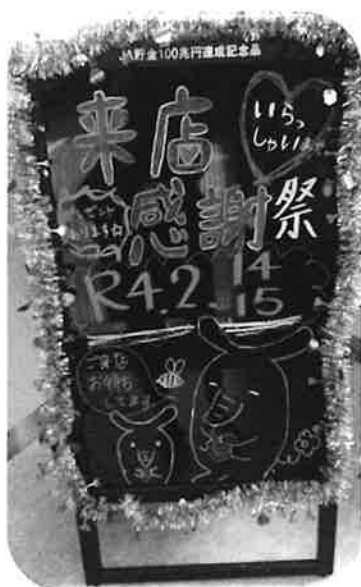 JA貯金100兆円達成記念品
いらっ
しゃいませ
来店
感謝祭
プレゼント
あります☆
R4.2.14
15
ご来店
お待ち
してます